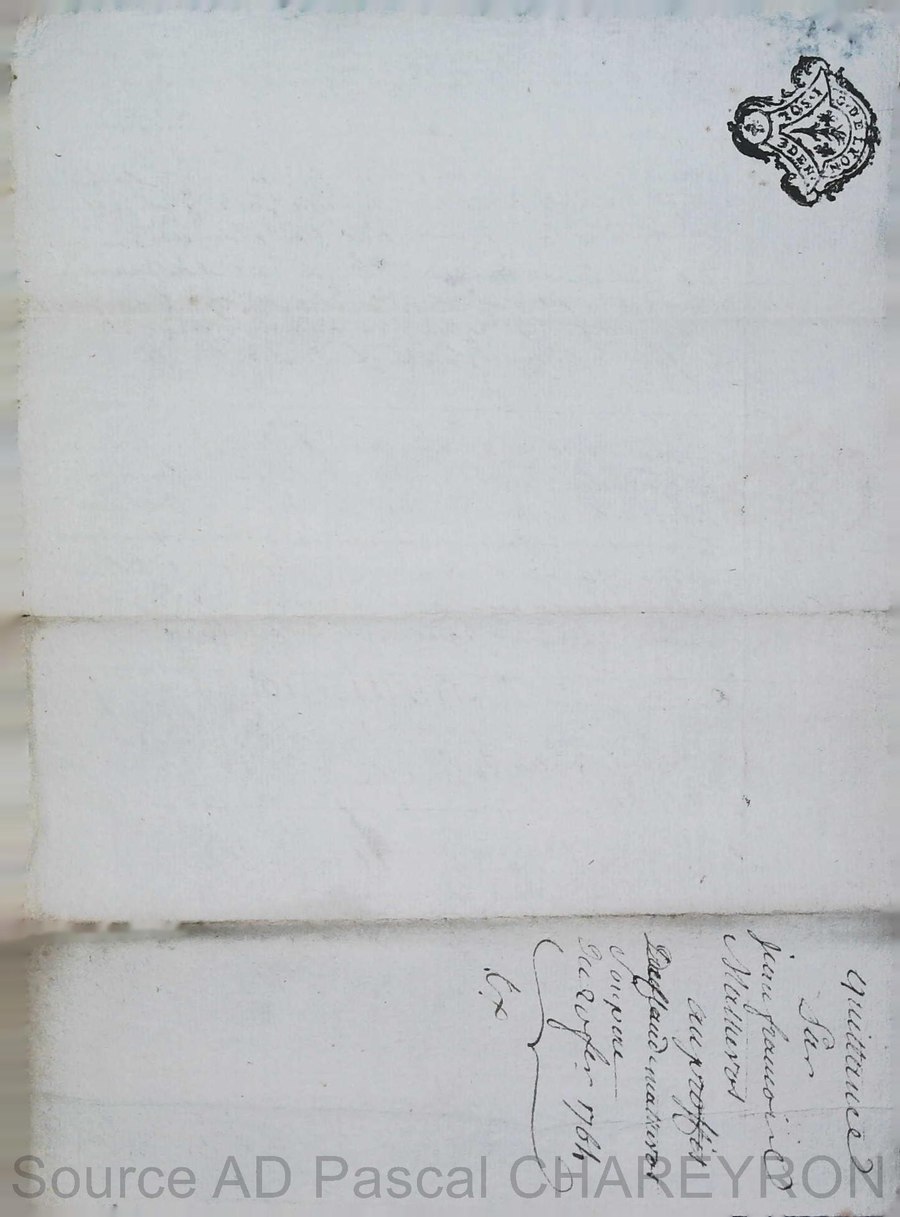 G. DE LYON
1 GS. 1
3 DEN.
quittance
Par
jean francois
Matheros
au proffit
De claude matheros
Son pere
Du 20 fer. 1764
Ex
Source AD Pascal CHAREYRON